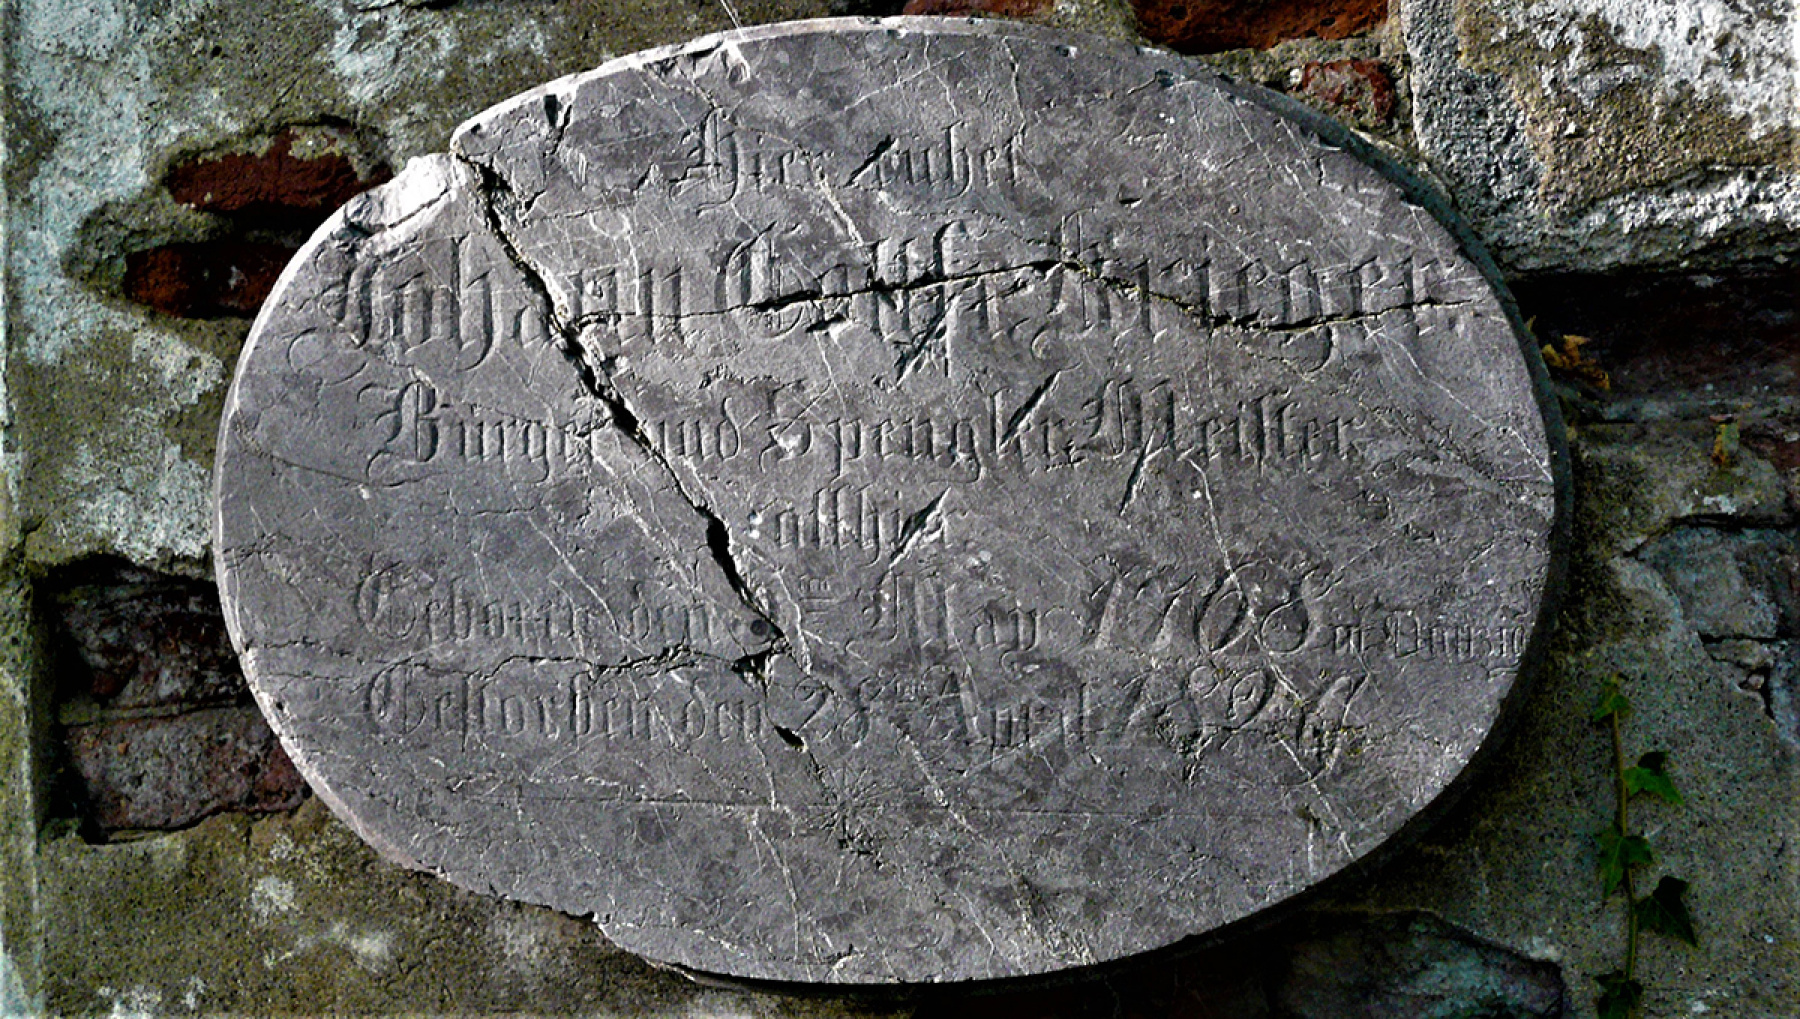 Hier ruhet
Johann Gottf. Krieger.
Bürger und Spengler Meister
allhier
Geboren den ten May 1768 in Danzig
Gestorben den 28ten April 1824